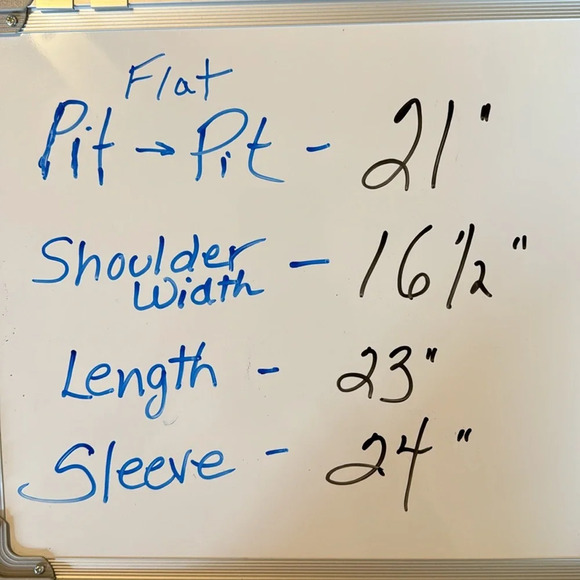 Flat
Pit → Pit - 21"
Shoulder Width - 16 1/2"
Length - 23"
Sleeve - 24"